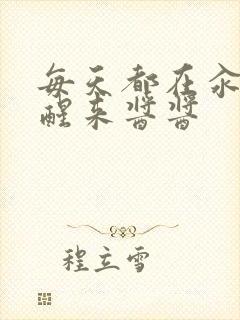 每天都在汆
醒来酱酱
程立雪